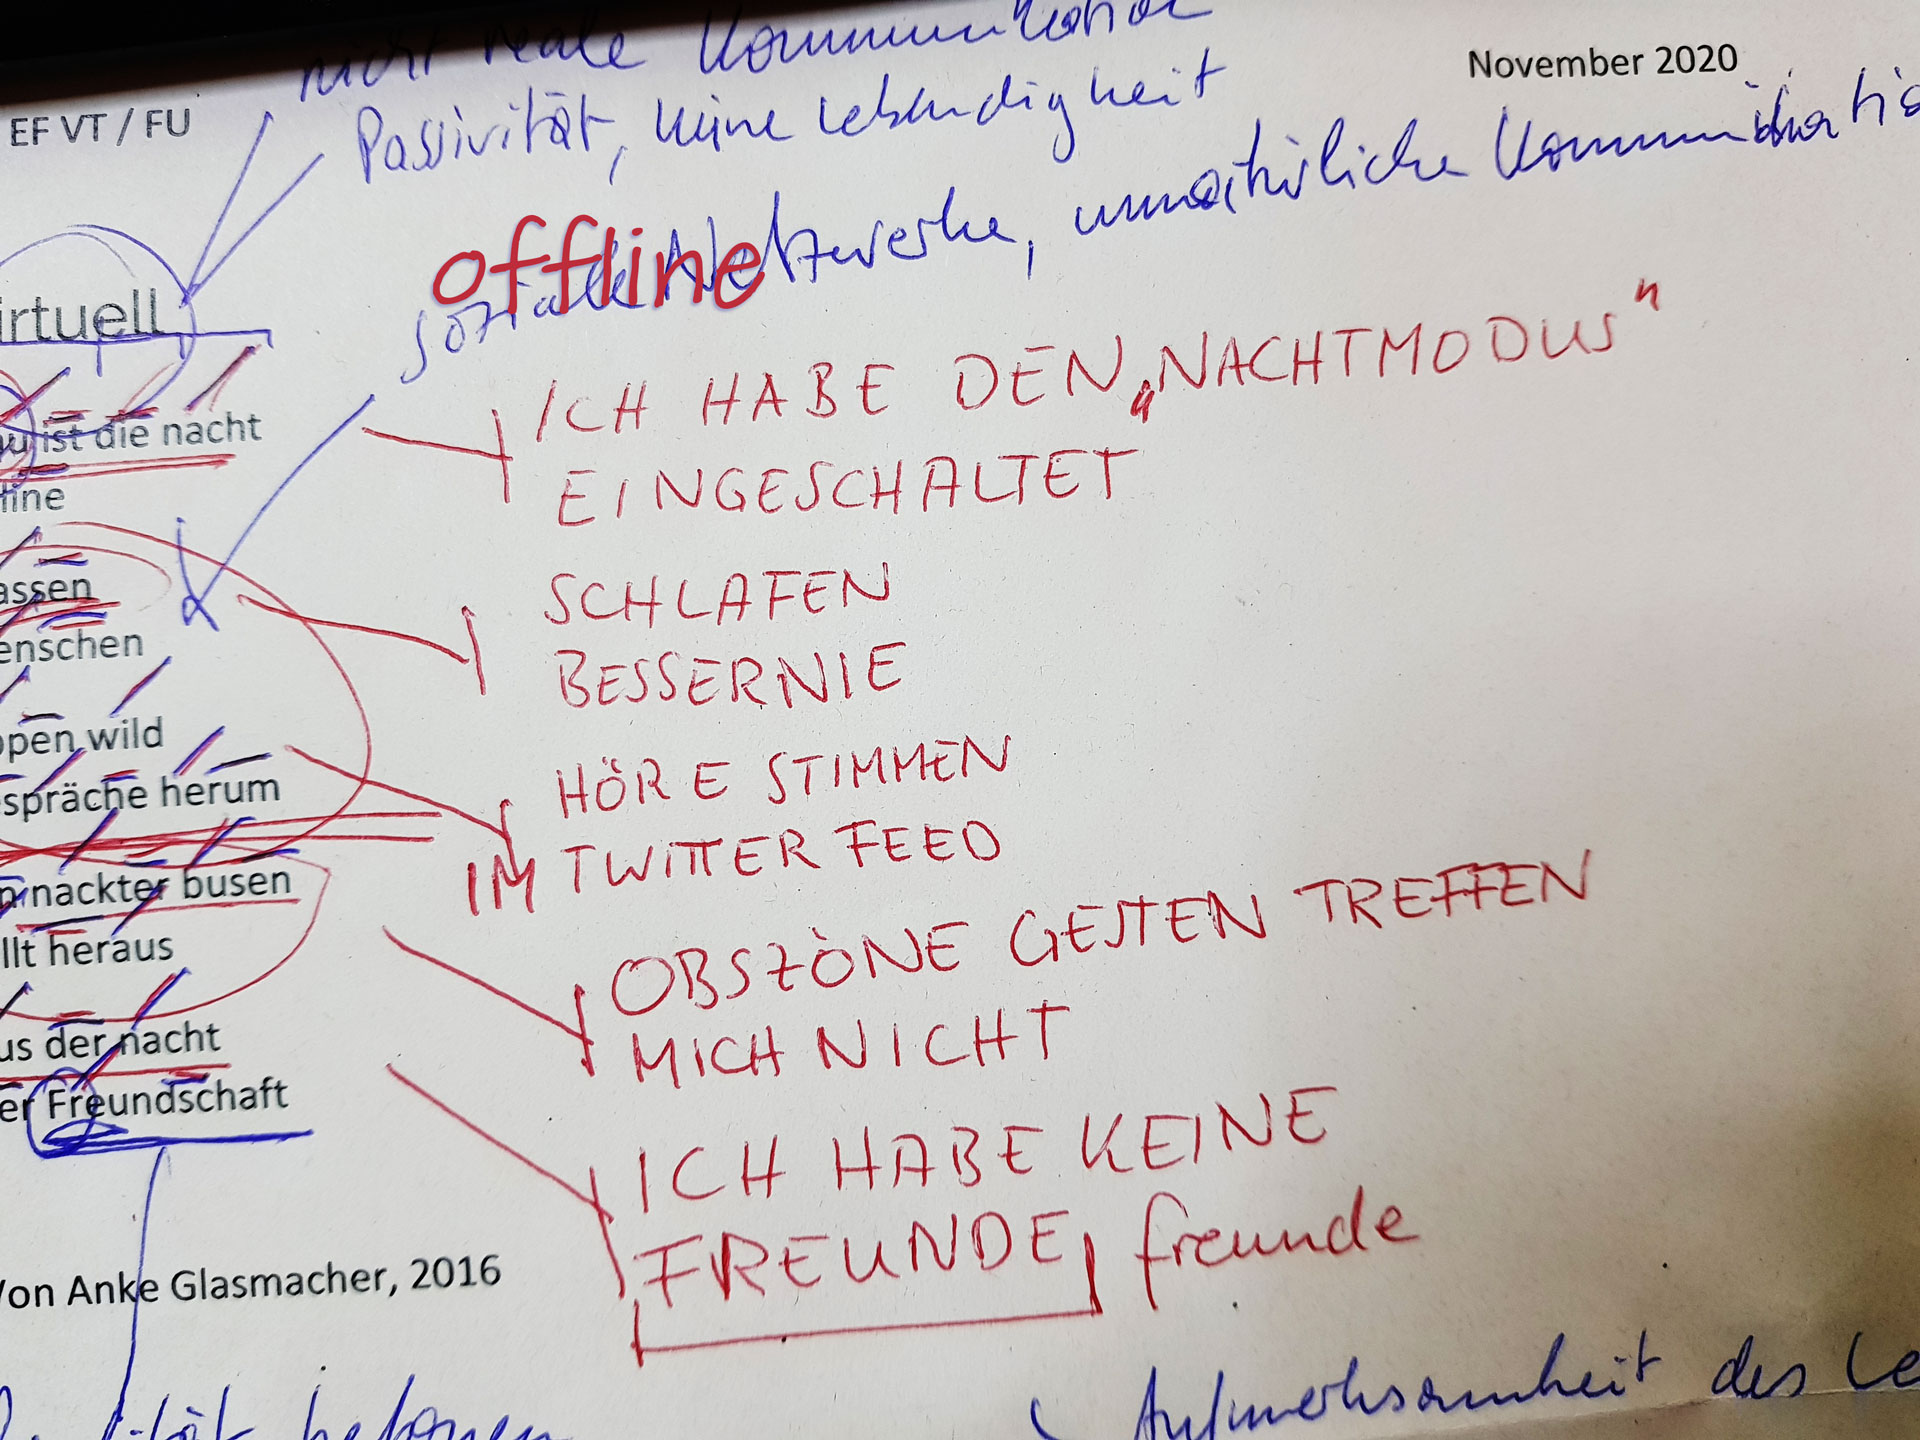 nicht reale Kommunikation
November 2020
EF VT / FU
Passivität, keine Lebendigkeit
soziale Netzwerke, unnatürliche Kommunikatio
offline
irtuell
ICH HABE DEN „NACHTMODUS"
EINGESCHALTET
au ist die nacht
line
SCHLAFEN
BESSERNIE
assen
enschen
ppen wild
espräche herum
HÖRE STIMMEN
IM TWITTER FEED
n nackter busen
llt heraus
OBSZÖNE GESTEN TREFFEN
MICH NICHT
us der nacht
er Freundschaft
ICH HABE KEINE
FREUNDE, freunde
Von Anke Glasmacher, 2016
betonen
Aufmerksamkeit des Le